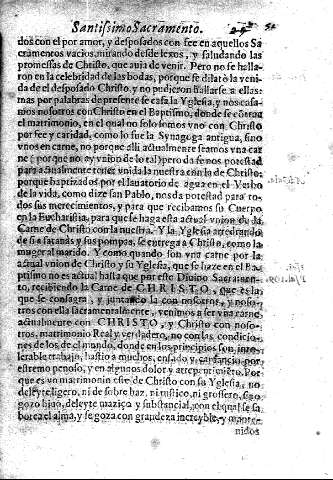 Santíssimo Sacramento.
dos con el por amor, y desposados con fee en aquellos Sa
cramentos vacios, mirando desde lexos, y saludando las
promessas de Christo, que auia de venir. Pero no se halla-
ron en la celebridad de las bodas, porque se dilatò la veni-
da de el desposado Christo, y no pudieron hallarse a ellas:
mas por palabras de presente se casa la Yglesia, y nos casa-
mos nosotros con Christo en el Baptismo, donde se contrae
el matrimonio, en el qual no solo somos vno con Christo
por fee y caridad, como lo fue la Synagoga antigua, sino
vnos en carne, no porque alli actualmente seamos vna car
ne (porque no ay vnion de lo tal) pero da se nos potestad
para actualmente tener vnida la nuestra con la de Christo:
porque baptizados por el lauatorio de agua en el Verbo
de la vida, como dize san Pablo, nos da potestad para to-
dos sus merecimientos, y para que recibamos su Cuerpo
en la Eucharistia, para que se haga esta actual vnion de la
Carne de Christo con la nuestra. Y la Yglesia arredrando
de si a satanás y sus pompas, se entrega a Christo, como la
muger al marido. Y como quando son vna carne por la
actual vnion de Christo y su Yglesia, que se haze en el Ba-
ptismo no es actual hasta que por este Diuino Sacramen-
to, recibiendo la Carne de CHRISTO, que es la
que se consagra, y juntando la con nosotros, y noso-
tros con ella sacramentalmente, venimos a ser vna carne
actualmente con CHRISTO, y Christo con noso-
tros, matrimonio Real y verdadero, no con las condicio-
nes de los de el mundo, donde en los principios son, into-
lerable trabajo, hastio a muchos, enfado y cansancio por
estremo penoso, y en algunos dolor y arrepentimiẽto. Por
que es vn matrimonio este de Christo con su Yglesia, no
deleyte ligero, ni de sobre haz, ni rustico, ni grossero, sino
gozo hijo, deleyte maziço y substancial, con el qual se sa
borea el alma, y se goza con grandeza increyble, y mante-
nidos